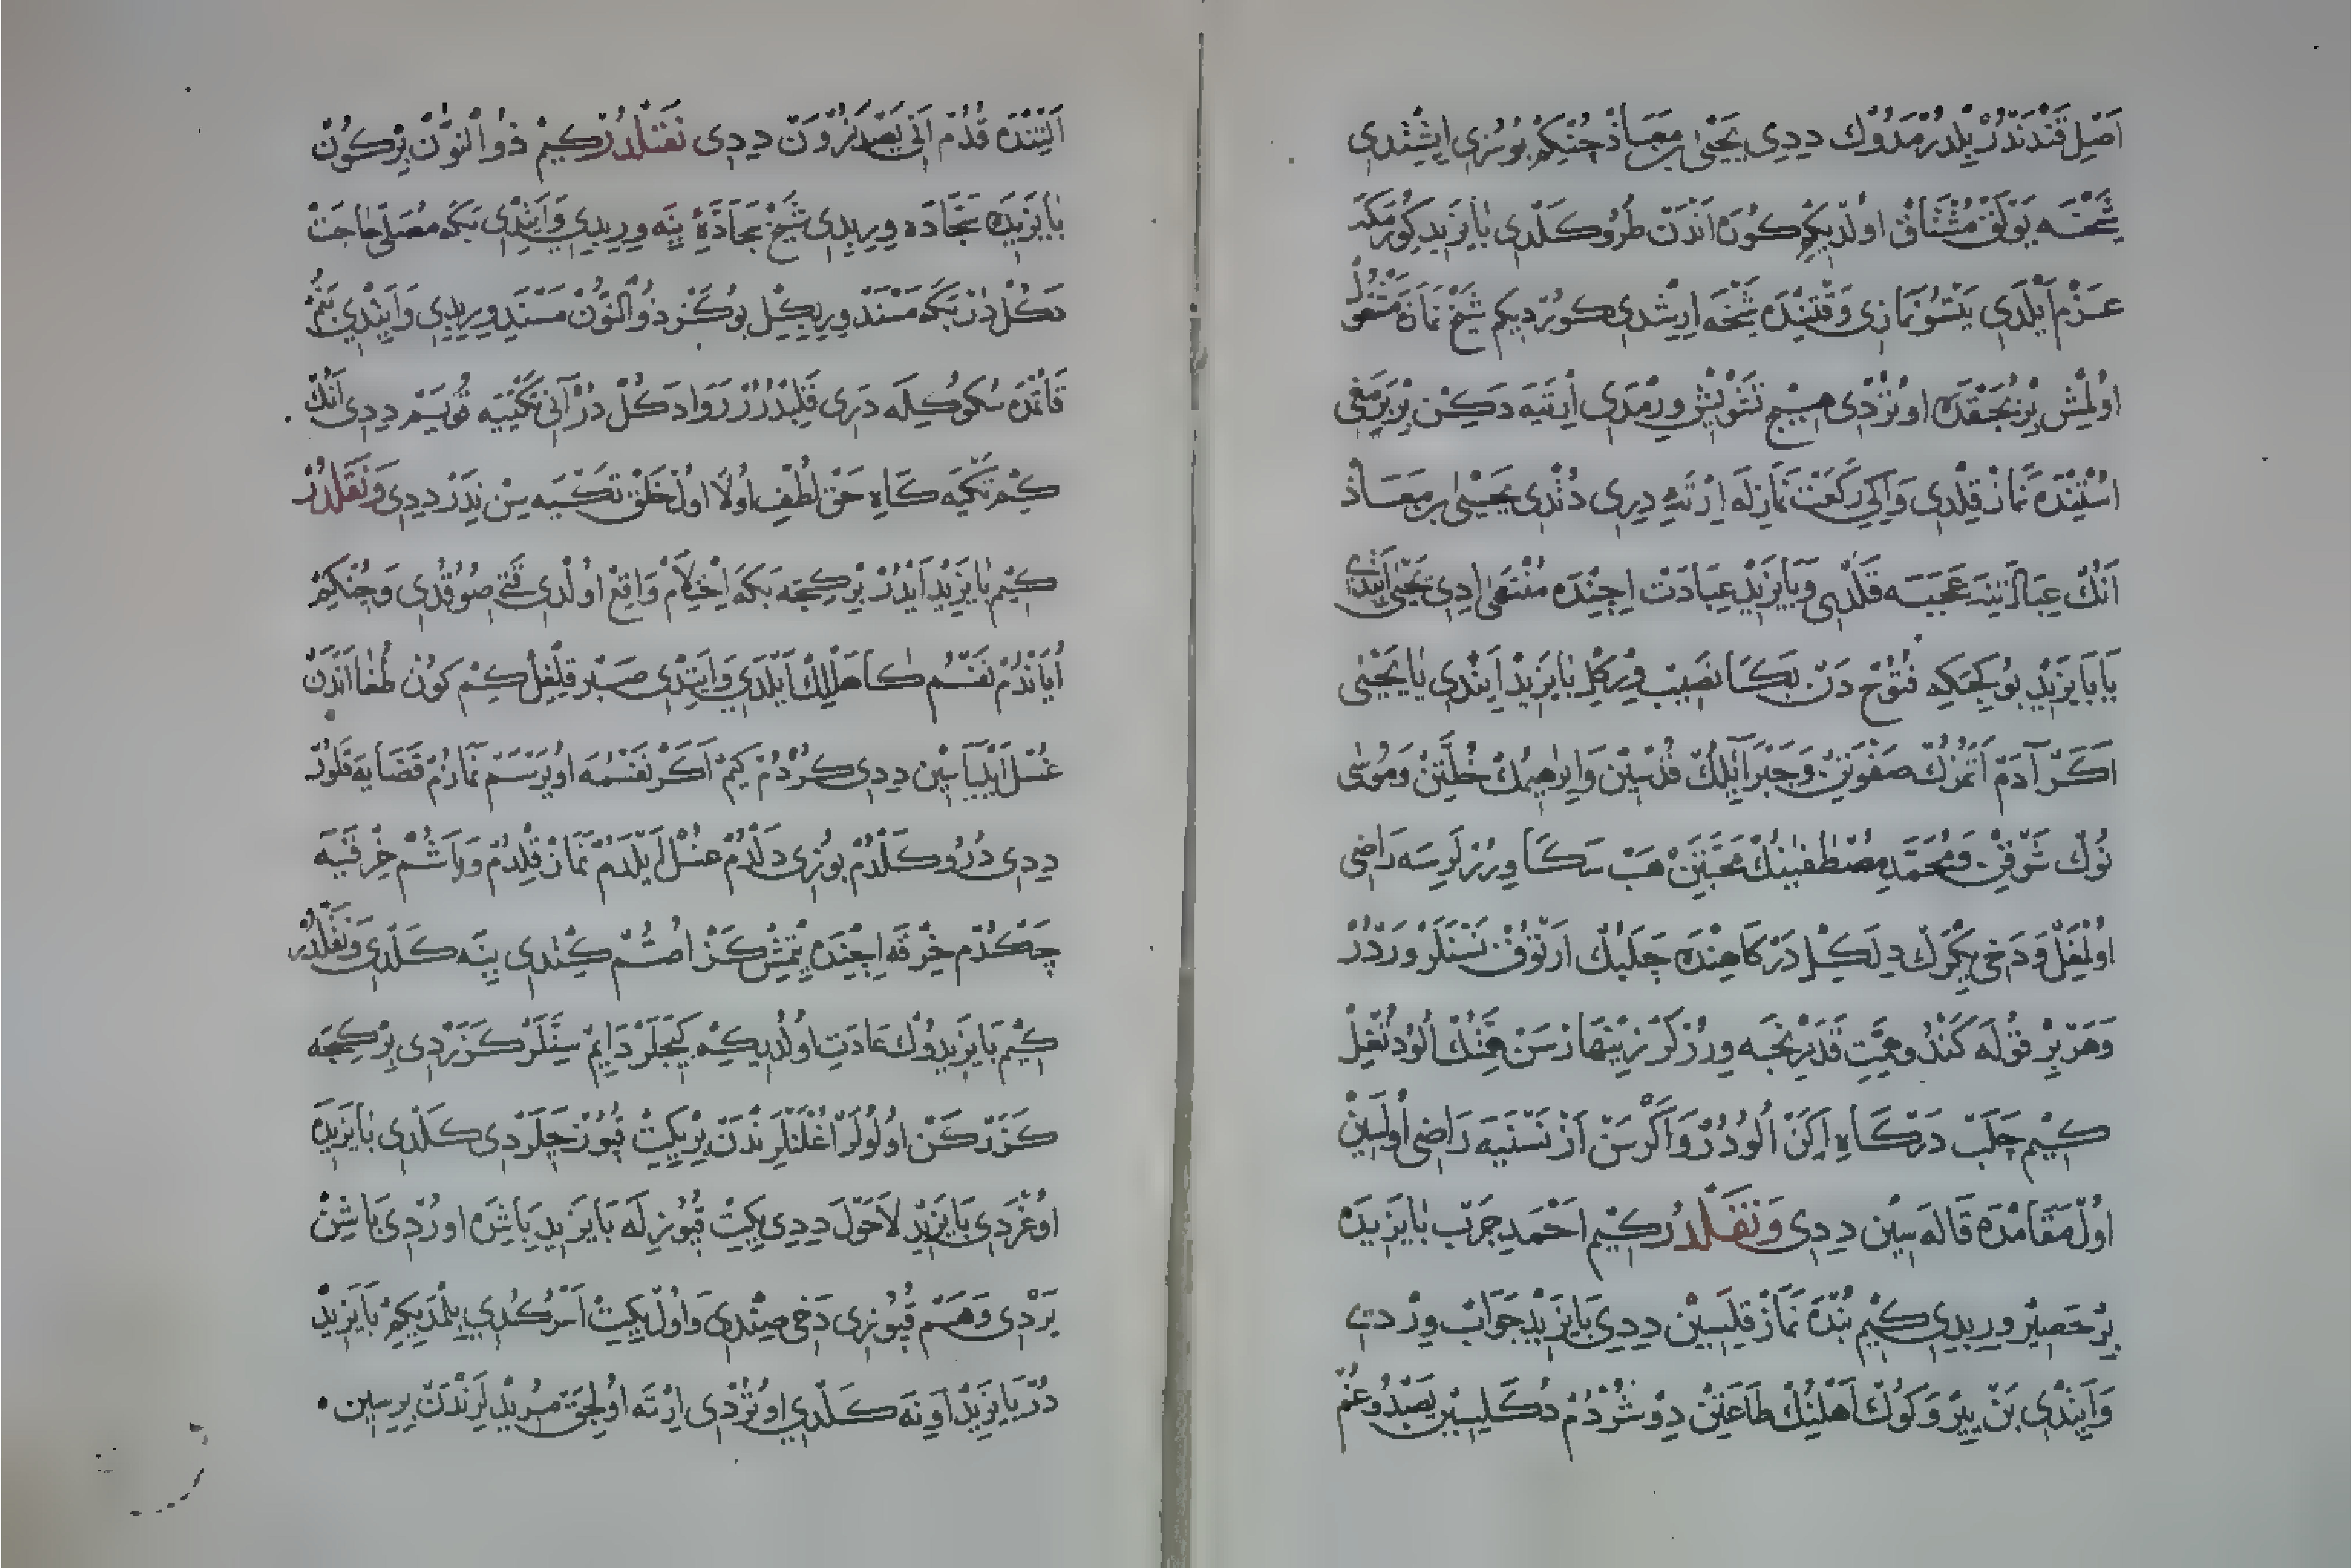 اَصْلِ قَنْدَنْدُرْ بِلْدُرْمَدُوكْ دِدِی يَحْيٰى بن مَعَاذْ چُنْكِمْ بُو سُزِی اِيشِتْدِی
شَيْخَه يَوْلَقْ مُشْتَاقْ اُولْدِيكِمْ كُونْ اَنْدَنْ طُرُو كَلْدِی بَايَزِيدِ كُورْمَكَه
عَزْم اَيْلَدِی يَتْسُو نَمَازِی وَقْتِنْدَه شَيْخَه اِرِشْدِی كُورْدِيكِم شَيْخ نَمَازَه مَشْغُولْ
اُولْمِشْ بِرْ بُجَقْدَه اُوتُرْدِی هِيچْ تَشْوِيشْ وِرْمَدِی اِرْتَيَه دَكِنْ بِرْ بَرْمَغِی
اُسْتِنْدَه نَمَازْ قِلْدِی وَاِكِی رَكْعَتْ نَمَازِلَه اِرْتَيِ دِرِی دُتْدِی يَحْيٰى بن مَعَاذْ
اَنُكْ عِبَادَتِنَه عَجَبَه قَلْدِی وَبَايَزِيدْ عِبَادَتْ اِچِنْدَه مُنْتَهٰى اِدِی يَحْيٰى اَيِتْدِی
يَا بَايَزِيدْ بُو كِجَكِه فُتُوحْ دَنْ بَكَا نَصِيبْ وِرْكِلْ بَايَزِيدْ اَيِتْدِی يَا يَحْيٰى
اَكَرْ آدَمْ اَتَمُزُكْ صَفْوَتِنْ وَجَبْرَائِلُكْ قُدْسِينْ وَاِبْرٰهِيمُكْ خُلَّتِنْ وَمُوسٰى
نُوكْ شَوْقِنْ وَمُحَمَّدِ مُصْطَفٰىنُكْ مَحَبَّتِنْ هَبْ سَكَا وِرُرْلَرِسَه رَاضِی
اُولْمَغِلْ وَدَخِی يِكْرَكْ دِلَكِلْ دَرْكَاهِنْدَه چَلَبُكْ اَرْتُوقْ نَسْنَلَرْ وَرْدُرْ
وَهَرْ بِرْ قُولَه كَنْدُو هِمَّتِ قَدَرِنْجَه وِرُرْلَرْ زِينْهَارْ سَنْ هِمَّتُكْ اُلُو دُتْغِلْ
كِيمْ چَلَبْ دَرْكَاهِ اِكَنْ اُلُودُرْ وَاَكَرْ سَنْ اَزْ نَسْنَيَه رَاضِی اُولَسِنْ
اُولْ مَقَامْدَه قَالَه سِينْ دِدِی وَنَقَلْدُرْ كِيمْ اَحْمَدِ حَرَبْ بَايَزِيدَه
بِرْ حَصِيرْ وِرِبِدِی كِيمْ بُنْدَه نَمَازْ قِلَسِينْ دِدِی بَايَزِيدْ جَوَابْ وِرْدِی
وَاَيِتْدِی بَنْ يِيرْ وَكُوكْ اَهْلِنُكْ طَاعَتِنْ دِوْشُرْدُمْ دُكَلِيسِنْ يَصْدُوغُمْ
اَلْتِنْدَه قُدُمْ اَنِی يَصْدَنُرْوَنْ دِدِی نَقَلْدُرْ كِيمْ ذُوا لنُّونْ بِرْ كُونْ
بَايَزِيدَه سَجَّادَه وِرِبِدِی شَيْخْ سَجَادَۀِ يِنَه وِرِبِدِی وَاَيِتْدِی بَكَه مُصَلَّى حَاجَتْ
دَكُلْ دُرْ بَكَه مَسْنَدْ وِرِبِكِلْ بُو كَزْ ذُوا لنُّونْ مَسْنَدِ وِرِبِدِی وَاَيِتْدِی بَنُمْ
قَاتُمْدَه سُكُو كِلَه دَرِی قِلِنْدُرُرْ رَوَا دَكُلْ دُرْ اَنِی تَكْيَيَه قُويَسَمْ دِدِی اَنُكْ
كِيمْ تَكْيَه كَاهِ حَقْ لُطْفِ اُولَا اُولْ خَلْقْ تَكْيَه سِنْ نِدَرْ دِدِی وَنَقَلْدُرْ
كِيمْ بَايَزِيدْ اَيْدُرْ بِرْ كِجَه بَكَه اِحْتِلَامْ وَاقِعْ اُولْدِی قَتِی صُوُقْدِی وَچُنْكِمْ
اُيَانْدُمْ نَفْسُمْ كَاهَلْلِكْ اَيْلَدِی وَاَيِتْدِی صَبْر قِلْغِلْ كِمْ كُونْ طُغَا اَنْدَنْ
غُسْل اَيْلَيَاسِينْ دِدِی كُرْدُمْ كِيمْ اَكَرْ نَفْسُمَه اُويَرْسَمْ نَمَازُمْ قَضَايَه قَلُورْ
دِدِی دُرُو كَلْدُمْ بُوزِی دَلْدُمْ غُسْل اَيْلَدُمْ نَمَازْ قِلْدُمْ وَبَاشُمْ خِرْقَيَه
چَكْدُمْ خِرْقَه اِچِنْدَه يِتْمِشْ كَزْ اُصُّمْ كِتْدِی يِنَه كَلْدِی وَنَقَلْدُرْ
كِيمْ بَايَزِيدُوكْ عَادَتِ اُولْدِيكِمْ كِيجَلَرْ دَايِمْ سِنْلَرْ كَزَرْدِی بِرْ كِيجَه
كَزَرْكَنْ اُولُولَرْ اُغْلَنْلَرِنْدَنْ بِرْ يِكِتْ قُپُوزْ چَلَرْدِی كَلْدِی بَايَزِيدَه
اُوغْرَدِی بَايَزِيدْ لَاحَوْلَ دِدِی يِكِتْ قُپُوزِلَه بَايَزِيدِ بَاشَنَه اُورْدِی بَاشِنْ
يَرْدِی وَهَمْ قُپُوزِی دَخِی صِنْدِی وَاُولْ يِكِتْ اَسْرُكُدِی بِلْمَدِيكِمْ بَايَزِيدْ
دُرْ بَايَزِيدْ اَوِنَه كَلْدِی اُوتُرْدِی اِرْتَه اُولِجَقْ مُرِيدْلَرِنْدَنْ بِرِسِينْ